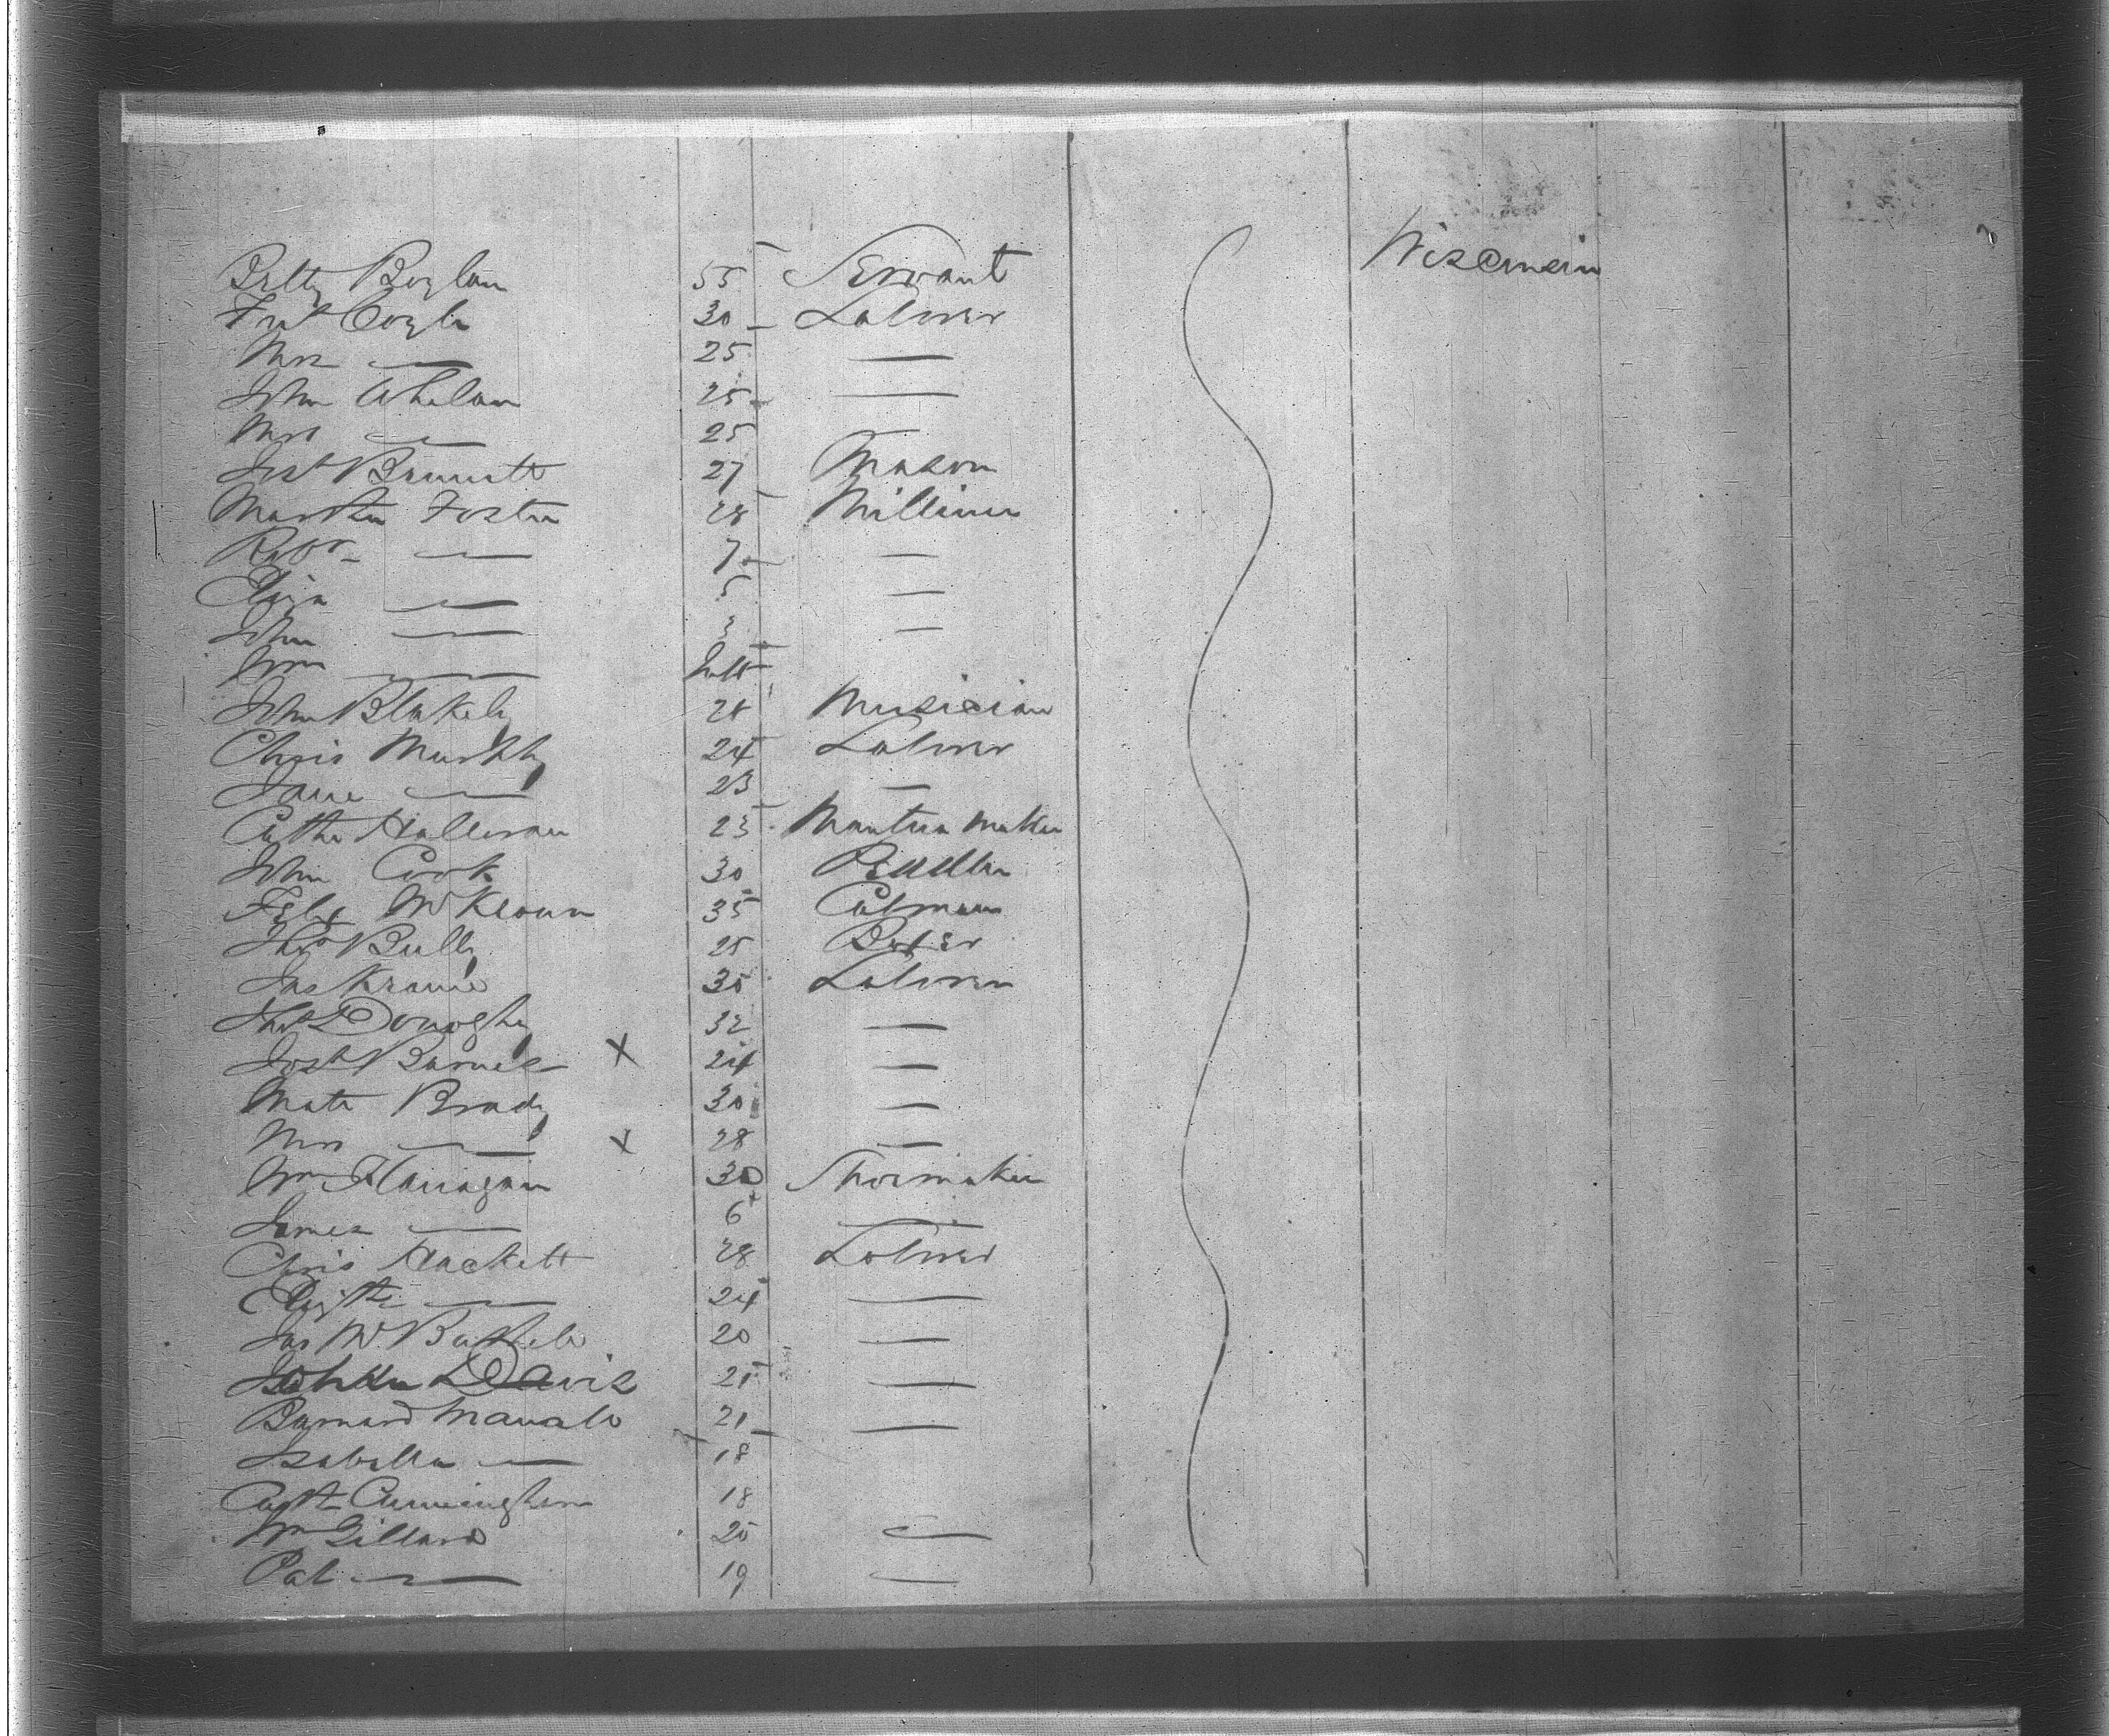 Betty Boylan 55 Servant Wisconsin
Coyle 30 Laborer
Mrs — 25 —
John Whelan 25 —
Mrs — 25
Josh Bennett 27 Mason
Martha Foster 28 Milliner
Robt — 7 —
Eliza — 5 —
John — 3 —
Wm — Inft
John Blakely 28 Musician
Chris Murphy 24 Laborer
Jane — 23 —
Cathe Halloran 25 Mantua Maker
John Cook 30 Peddlar
Felix McKeown 35 Cabman
Thos Bully 25
Jas 35 Laborer
Thos Donoghy 32 —
Josh Barnes X 24 —
Matt Brady 30 —
Mrs — X 28 —
Wm Flanagan 30 Shoemaker
James — 6 —
Chris Hackett 28 Laborer
Elizth — 24 —
Jas 20 —
Davis 21 —
Barnard 21 —
Isabella — 18
Cunningham 18
Wm Gillard 25 —
Pat — 19 —